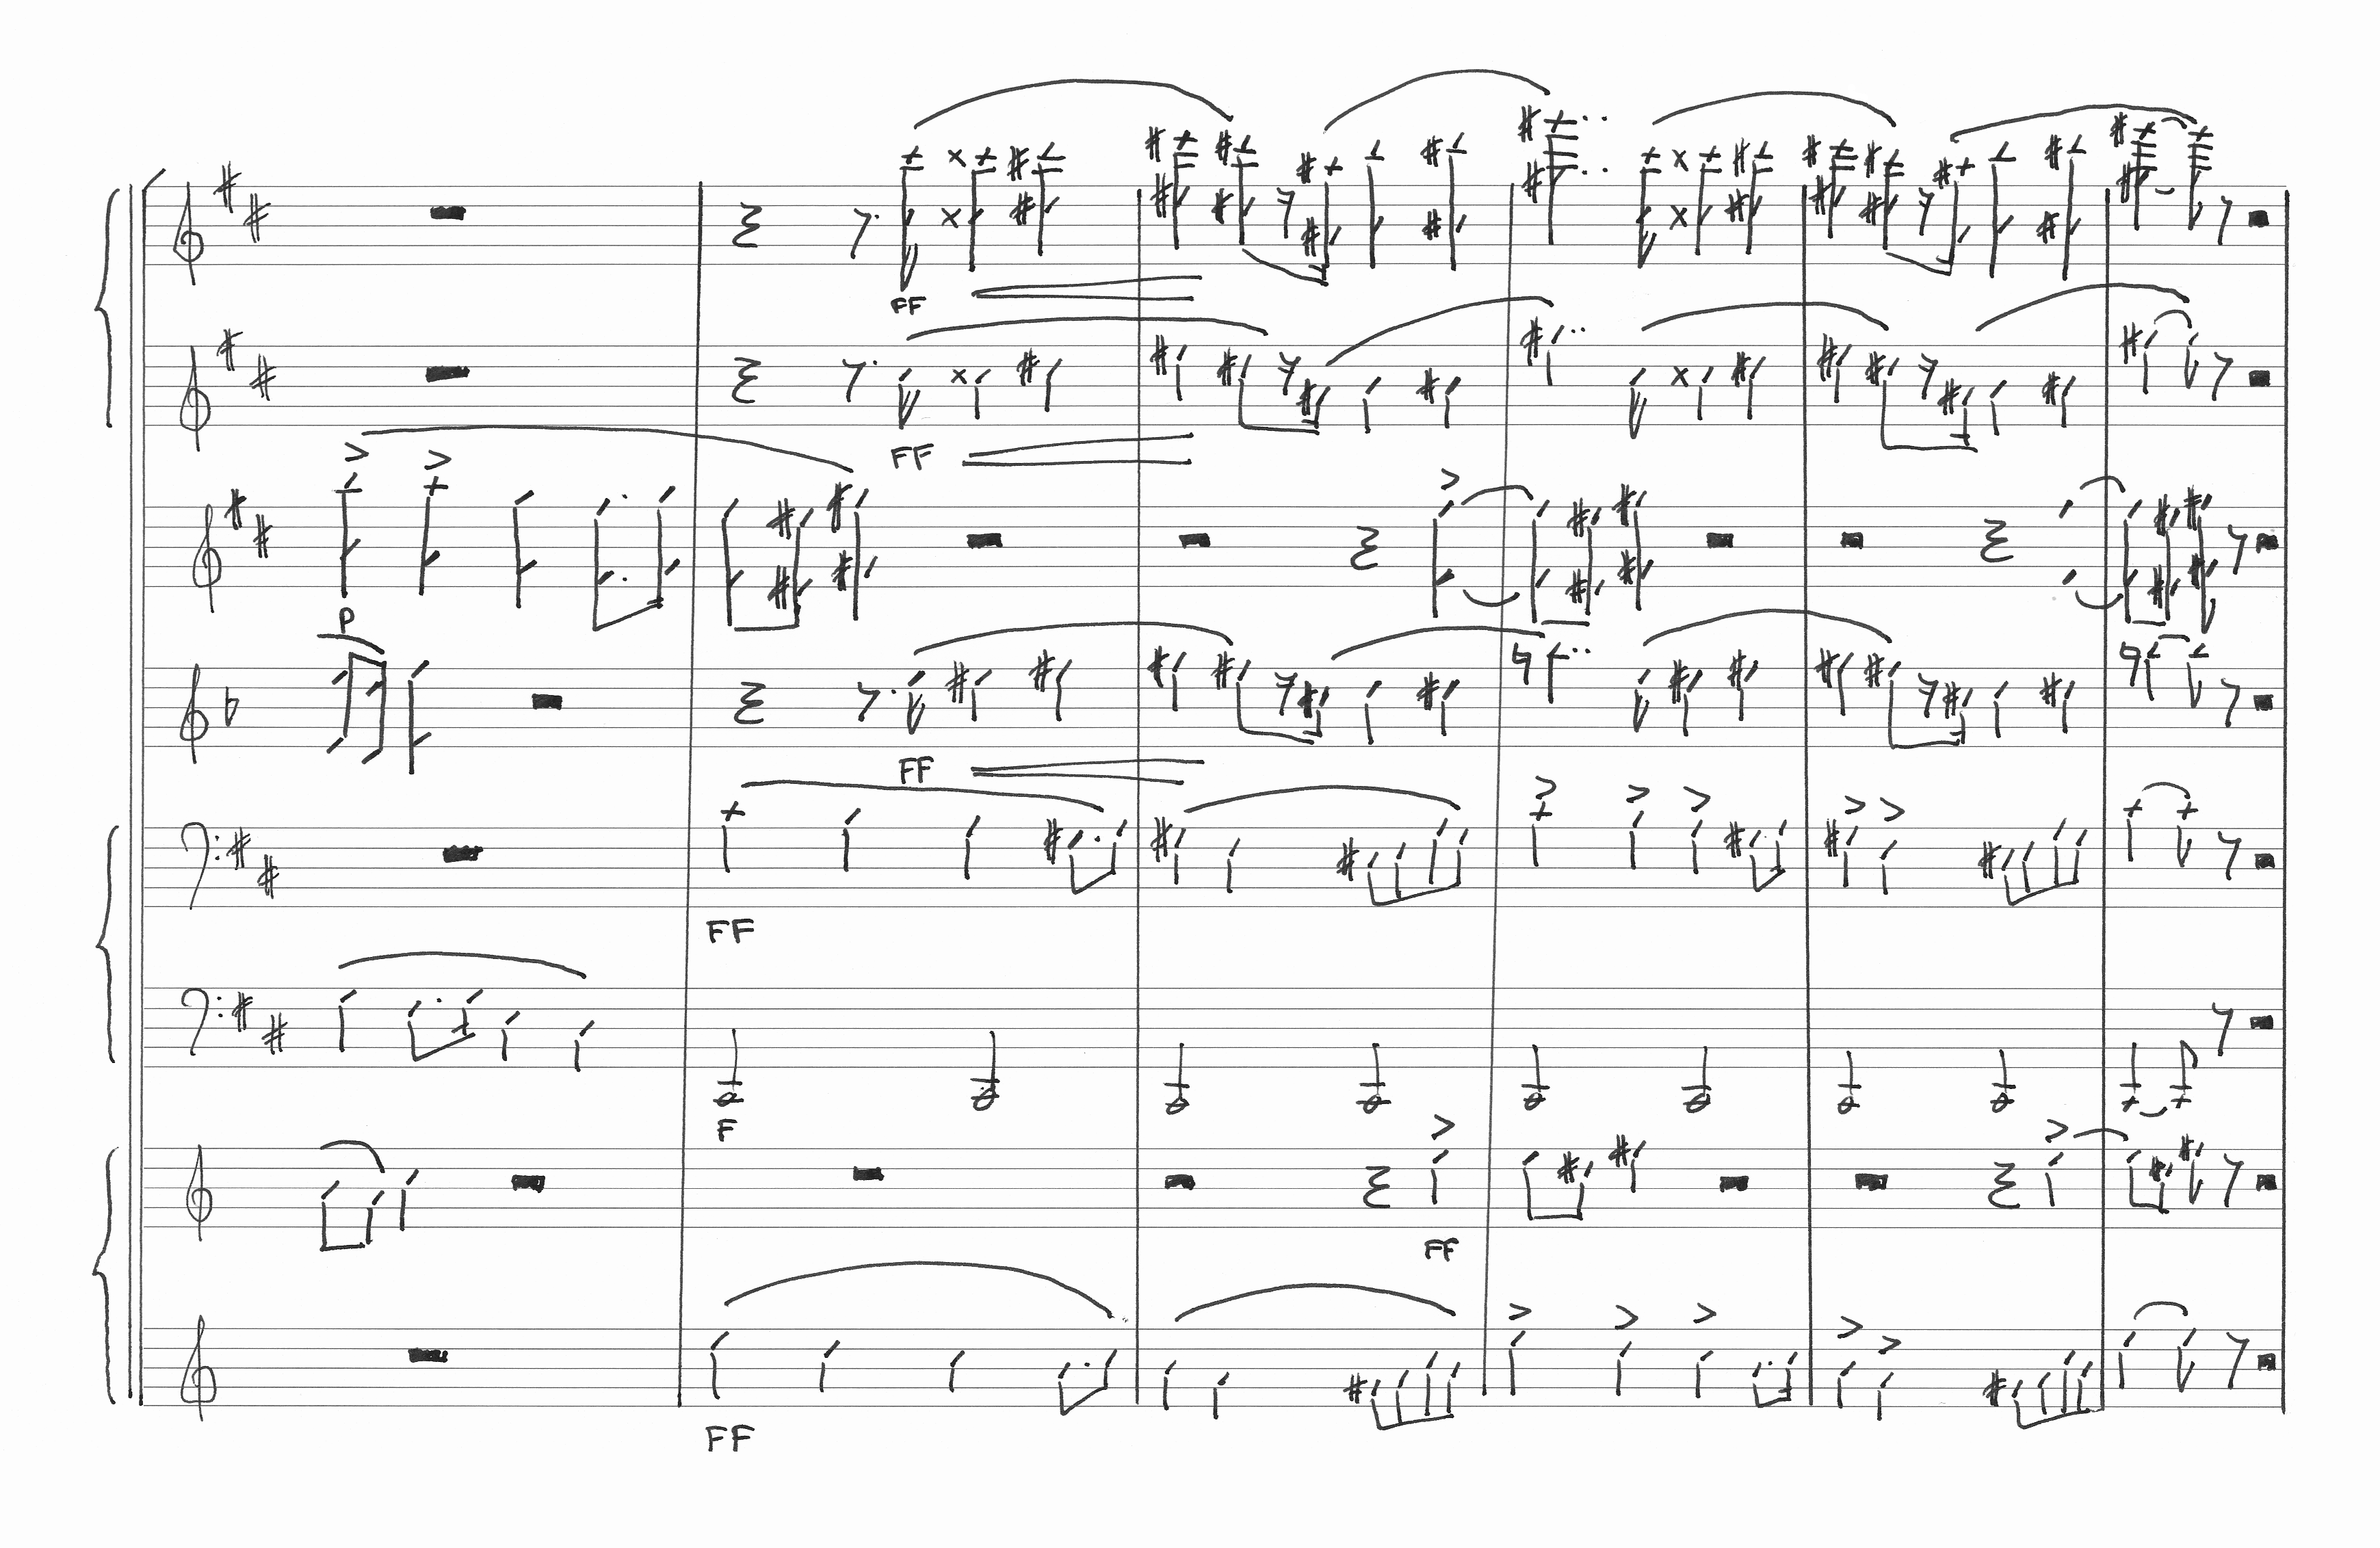 FF
FF
P
FF
FF
F
FF
FF